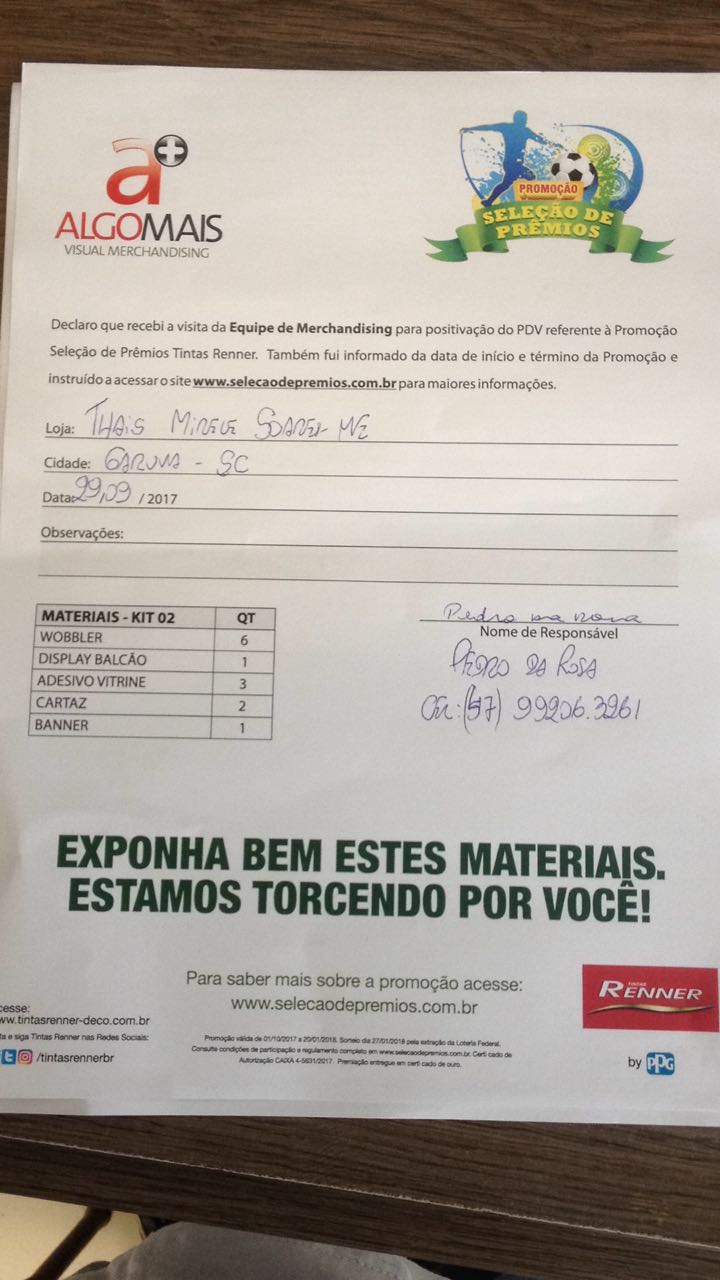 a+
ALGOMAIS
VISUAL MERCHANDISING
PROMOÇÃO
SELEÇÃO DE
PRÊMIOS
Declaro que recebi a visita da Equipe de Merchandising para positivação do PDV referente à Promoção
Seleção de Prêmios Tintas Renner. Também fui informado da data de início e término da Promoção e
instruído a acessar o site www.selecaodepremios.com.br para maiores informações.
Loja: THAIS MIRELE SOARES ME
Cidade: GARUVA - SC
Data: 29,09 / 2017
Observações:
MATERIAIS - KIT 02 QT
WOBBLER 6
DISPLAY BALCÃO 1
ADESIVO VITRINE 3
CARTAZ 2
BANNER 1
Pedro da Rosa
Nome de Responsável
PEDRO DA ROSA
(47) 99206.3261
EXPONHA BEM ESTES MATERIAIS.
ESTAMOS TORCENDO POR VOCÊ!
Para saber mais sobre a promoção acesse:
www.selecaodepremios.com.br
cesse:
ww.tintasrenner-deco.com.br
ta e siga Tintas Renner nas Redes Sociais:
/tintasrennerbr
Promoção válida de 01/10/2017 a 20/01/2018. Sorteio dia 27/01/2018 pela extração da Loteria Federal.
Consulte condições de participação e regulamento completo em www.selecaodepremios.com.br. Certi cado de
Autorização CAIXA 4-5631/2017. Premiação entregue em certi cado de ouro.
TINTAS
RENNER
by PPG